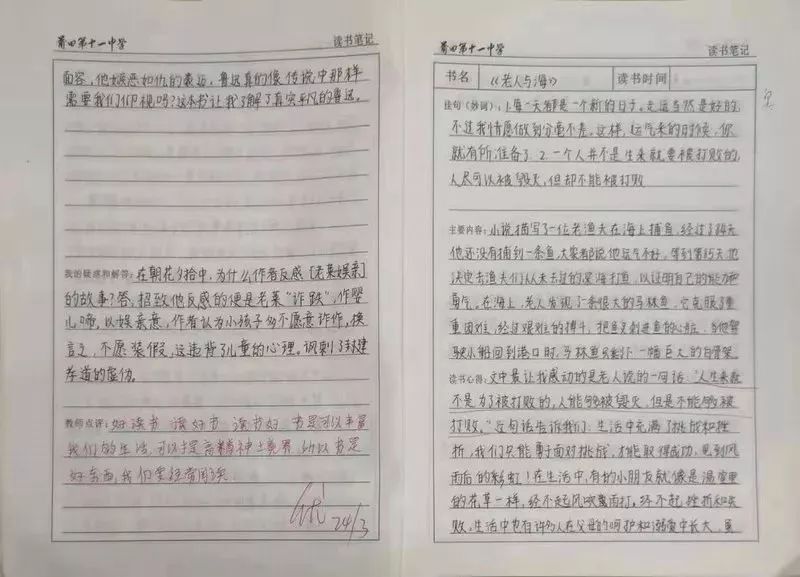 莆田第十一中学
读书笔记
面容，他嫉恶如仇的表达。鲁迅真的像传说中那样
需要我们仰视吗？这本书让我了解了真实平凡的鲁迅。
我的疑惑和解答：在朝花夕拾中，为什么作者反感［老莱娱亲］
的故事？答，招致他反感的便是老莱“诈跌”，作婴
儿啼，以娱亲意，作者认为小孩子多不愿意诈作，换
言之，不愿装假，这违背了儿童的心理。讽刺了封建
孝道的虚伪。
教师点评：好读书 读好书 读书好 书是可以丰富
我们的生活，可以提高精神上境界，所以书是
好东西，我们要经常阅读
优
24/3
莆田第十一中学
读书笔记
书名
《老人与海》
读书时间
佳句（妙词）：1.每一天都是一个新的日子。走运当然是好的
不过我情愿做到分毫不差。这样，运气来的时候，你
就有所准备了. 2. 一个人并不是生来就要被打败的，
人尽可以被毁灭，但却不能被打败
主要内容：小说描写了一位老渔夫在海上捕鱼，经过了84天
他还没有捕到一条鱼，大家都说他运气不好，等到第85天他
决定去渔夫们从未去过的深海打鱼，以证明自己的能力和
勇气。在海上，老人发现了一条很大的马林鱼，它克服了重
重困难，经过艰难的搏斗，把鱼叉刺进鱼的心脏，当他驾
驶小船回到港口时，马林鱼只剩下一幅巨大的白骨架。
读书心得：文中最让我感动的是老人说的一句话：“人生来就
不是为了被打败的，人能够被毁灭，但是不能够被
打败。”这句话告诉我们：生活中充满了挑战和挫
折，我们只能勇于面对挑战，才能取得成功，见到风
雨后的彩虹！在生活中，有的小朋友就像是温室里
的花草一样，经不起风吹雨打，经不起挫折和失
败，生活中也有许多人在父母的呵护和溺爱中长大，虽